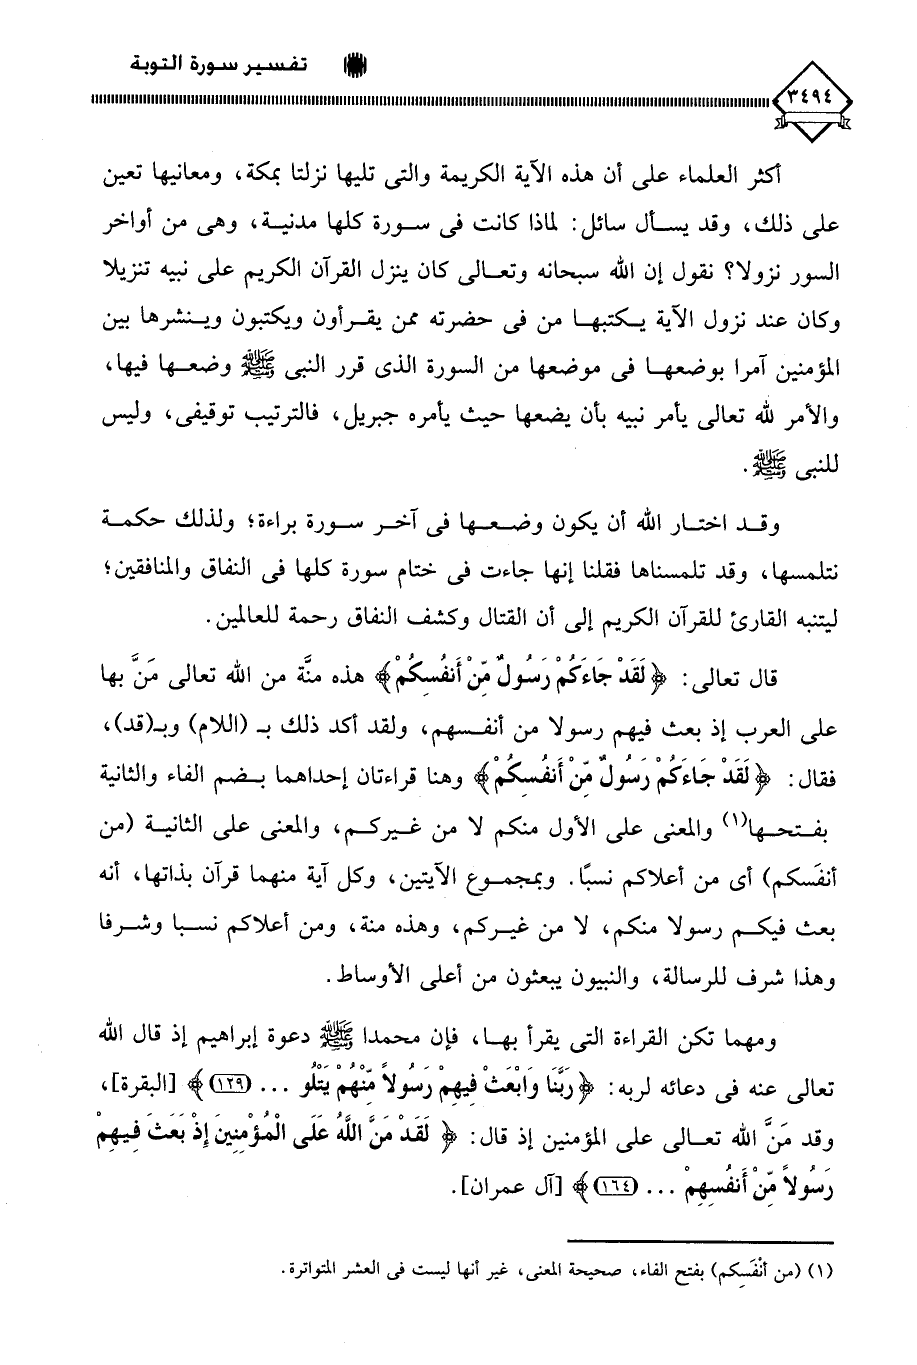 تفسير سورة التوبة
٣٤٩٤
أكثر العلماء على أن هذه الآية الكريمة والتى تليها نزلتا بمكة، ومعانيها تعين
على ذلك، وقد يسأل سائل: لماذا كانت فى سورة كلها مدنية، وهى من أواخر
السور نزولا؟ نقول إن الله سبحانه وتعالى كان ينزل القرآن الكريم على نبيه تنزيلا
وكان عند نزول الآية يكتبها من فى حضرته ممن يقرأون ويكتبون وينشرها بين
المؤمنين آمرا بوضعها فى موضعها من السورة الذى قرر النبى ﷺ وضعها فيها،
والأمر لله تعالى يأمر نبيه بأن يضعها حيث يأمره جبريل، فالترتيب توقيفى، وليس
للنبى ﷺ.
وقد اختار الله أن يكون وضعها فى آخر سورة براءة؛ ولذلك حكمة
نتلمسها، وقد تلمسناها فقلنا إنها جاءت فى ختام سورة كلها فى النفاق والمنافقين؛
ليتنبه القارئ للقرآن الكريم إلى أن القتال وكشف النفاق رحمة للعالمين.
قال تعالى: ﴿ لَقَدْ جَاءَكُمْ رَسُولٌ مِّنْ أَنفُسِكُمْ ﴾ هذه منَّة من الله تعالى مَنَّ بها
على العرب إذ بعث فيهم رسولا من أنفسهم، ولقد أكد ذلك بـ (اللام) وبـ(قد)،
فقال: ﴿ لَقَدْ جَاءَكُمْ رَسُولٌ مِّنْ أَنفُسِكُمْ ﴾ وهنا قراءتان إحداهما بضم الفاء والثانية
بفتحها(١) والمعنى على الأول منكم لا من غيركم، والمعنى على الثانية (من
أنفَسكم) أى من أعلاكم نسبًا. وبمجموع الآيتين، وكل آية منهما قرآن بذاتها، أنه
بعث فيكم رسولا منكم، لا من غيركم، وهذه منة، ومن أعلاكم نسبا وشرفا
وهذا شرف للرسالة، والنبيون يبعثون من أعلى الأوساط.
ومهما تكن القراءة التى يقرأ بها، فإن محمدا ﷺ دعوة إبراهيم إذ قال الله
تعالى عنه فى دعائه لربه: ﴿ رَبَّنَا وَابْعَثْ فِيهِمْ رَسُولاً مِّنْهُمْ يَتْلُو ... (١٢٩) ﴾ [البقرة]،
وقد مَنَّ الله تعالى على المؤمنين إذ قال: ﴿ لَقَدْ مَنَّ اللَّهُ عَلَى الْمُؤْمِنِينَ إِذْ بَعَثَ فِيهِمْ
رَسُولاً مِّنْ أَنفُسِهِمْ ... (١٦٤) ﴾ [آل عمران].
(١) (من أنْفَسِكم) بفتح الفاء، صحيحة المعنى، غير أنها ليست فى العشر المتواترة.